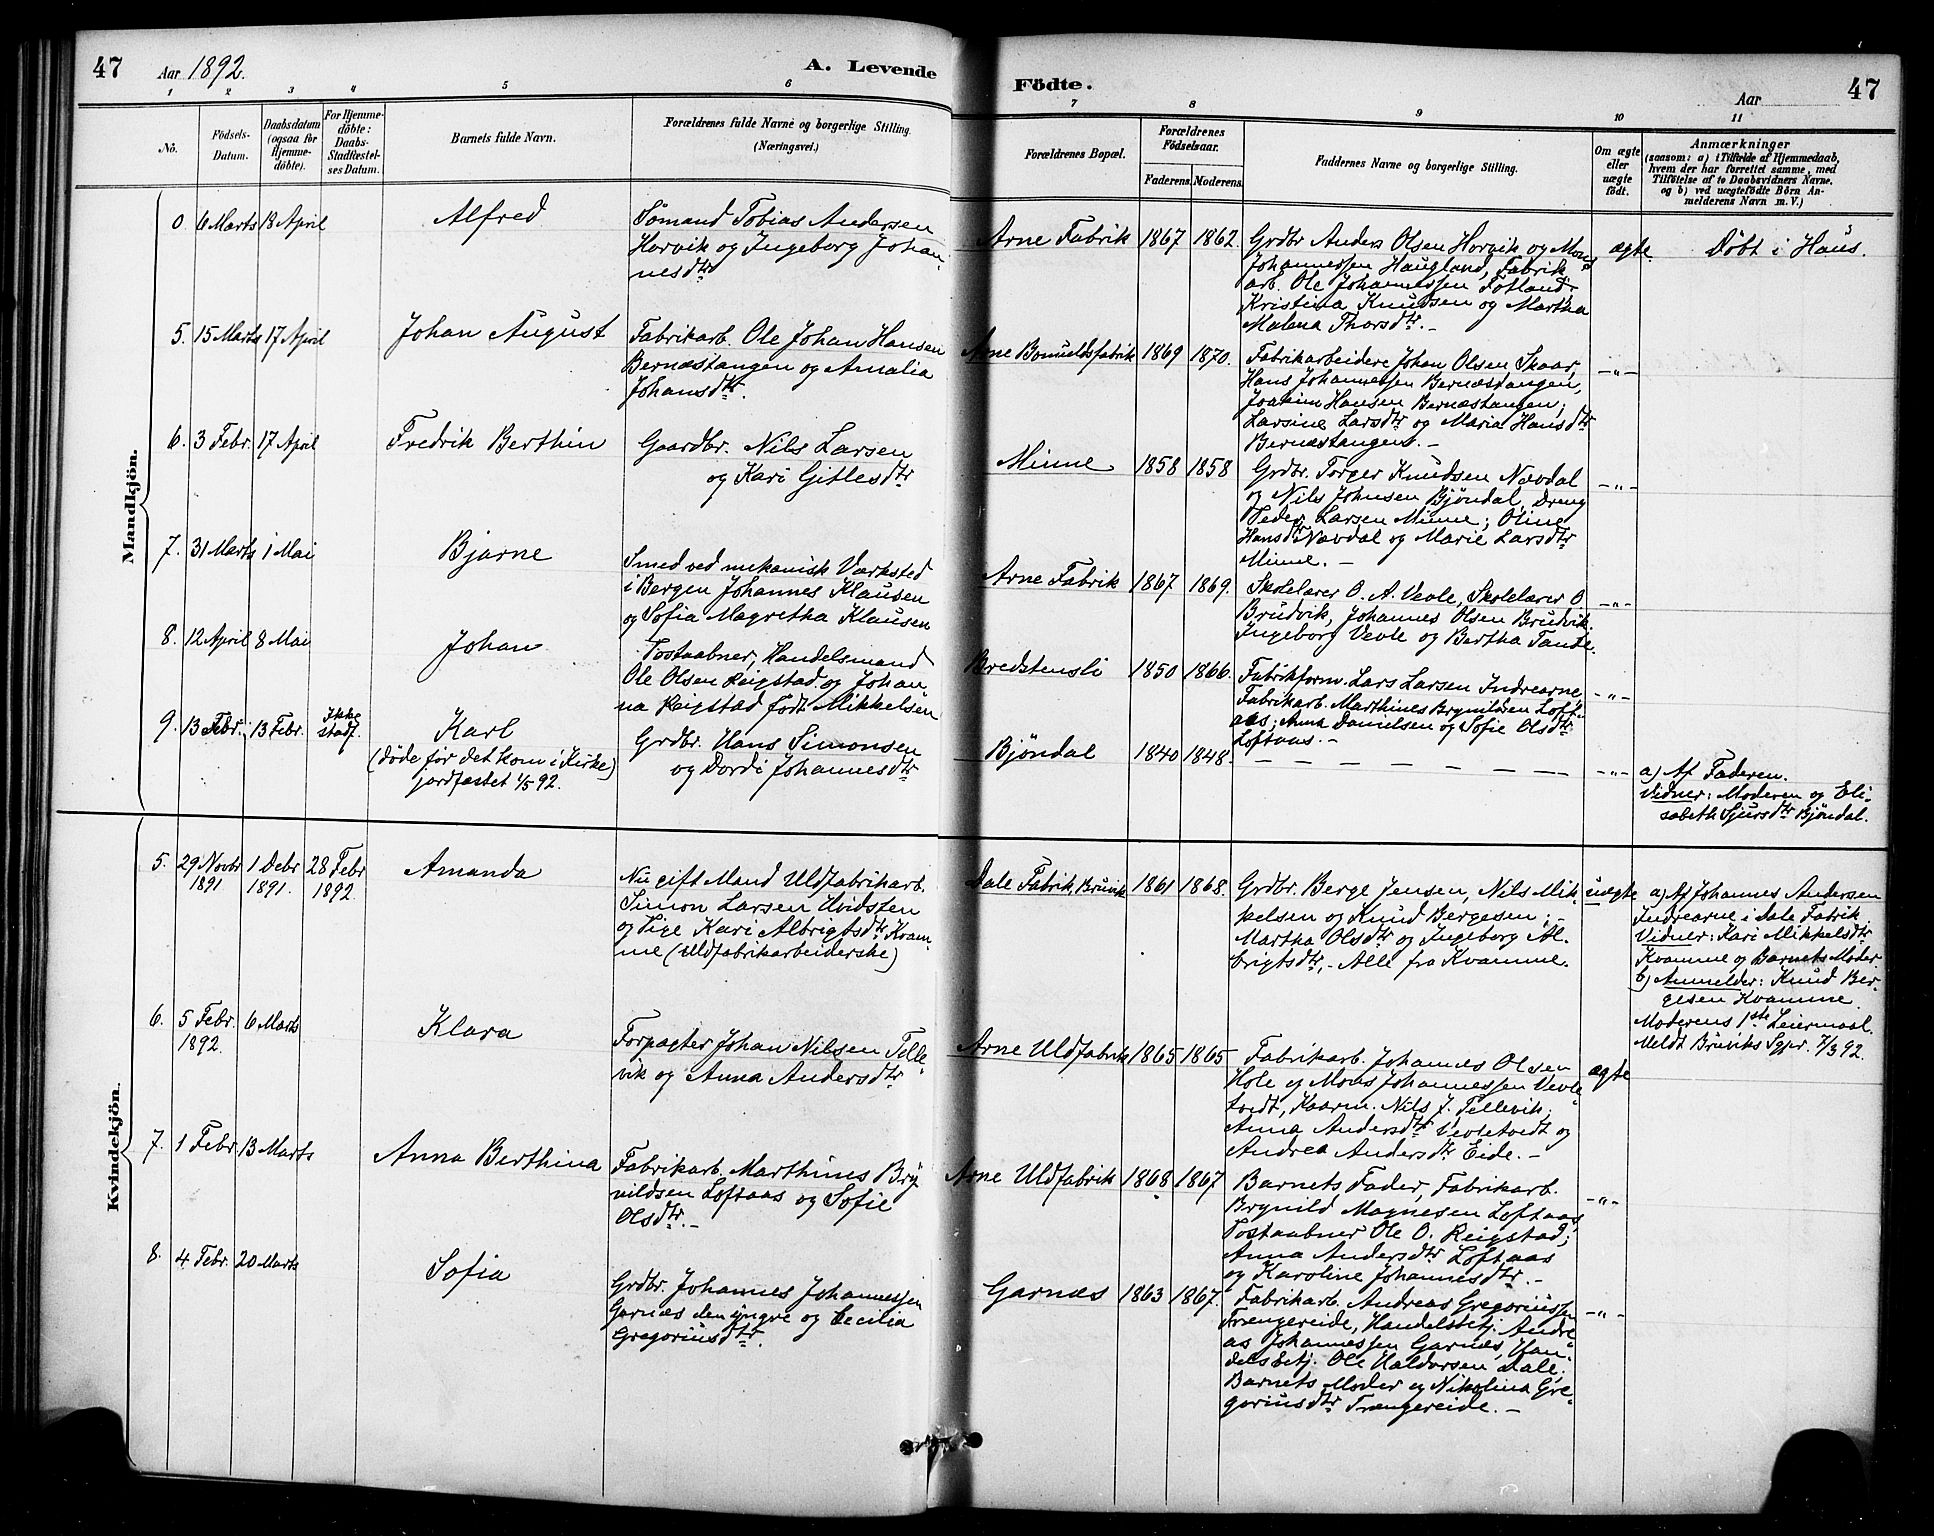 47 Aar 1892. A. Levende
Födte. Aar 47
1 2 3 4 5 6
7 8 9 10 11
No.
Födsels-
Datum.
Daabsdatum
(ogsaa for
Hjemme-
döbte).
For Hjemme-
döbte:
Daabs-
Stadfæstel-
ses Datum.
Barnets fulde Navn.
Forældrenes fulde Navne og borgerlige Stilling.
(Næringsvei.)
Forældrenes Bopæl.
Forældrenes
Födselsaar.
Faderens. Moderens.
Faddernes Navne og borgerlige Stilling.
Om ægte
eller
uægte
födt.
Anmærkninger
(saasom: a) i Tilfælde af Hjemmedaab,
hvem der har forrettet samme, med
Tilföielse af to Daabsvidners Navne,
og b) ved uægtefödte Börn An-
melderens Navn m. V.)
Mandkjön.
0. 6 Marts 18 April
Alfred
Sömand Tobias Andersen
Horvik og Ingeborg Johan-
nesdtr
Arne Fabrik 1867 1862
Grdbr Anders Olsen Horvik og Mons
Johannessen Haugland, Fabrik
arb. Ole Johannessen Fotland.
Kristina Knudsen og Martha
Malena Thorsdtr. -
ægte.
Döbt i Haus.
5. 15 Marts 17 April
Johan August
Fabrikarb. Ole Johan Hansen
Bernæstangen og Amalia
Johansdtr.
Arne Bomuldsfabrik 1869 1870.
Fabrikarbeidere Johan Olsen Skaar,
Hans Johannessen Bernæstangen,
Joakim Hansen Bernæstangen;
Larsine Larsdtr og Maria Hansdtr
Bernæstangen. -
-"-
6. 3 Febr. 17 April
Fredrik Berthin
Gaardbr. Nils Larsen
og Kari Gitlesdtr
Minne 1858 1858
Grdbr. Torger Knudsen Nævdal
og Nils Johnsen Bjöndal, Dreng
Peder Larsen Minne; Oline
Hansdtr Nævdal og Marie Larsdtr
Minne. -
-"-
7. 31 Marts 1 Mai
Bjarne
Smed ved mekanisk Værksted
i Bergen Johannes Klausen
og Sofia Magretha Klausen
Arne Fabrik 1867 1869.
Skolelærer O. A. Vevle, Skolelærer O
Brudvik, Johannes Olsen Brudvik.
Ingeborg Vevle og Bertha Tande.
-"-
8. 12 April 8 Mai
Johan
Postaabner, Handelsmand
Ole Olsen Reigstad og Johan-
na Reigstad födt Mikkelsen
Bredstensli 1850 1866.
Fabrikform. Lars Larsen Indrearne,
Fabrikarb. Marthines Brynildsen Loft-
aas; Anna Danielsen og Sofie Olsdtr
Loftaas. -
-"-
9. 13 Febr. 13 Febr. Ikke
stadf.
Karl
(döde för det kom i Kirke)
jordfæstet 1/5 92.
Grdbr. Hans Simonsen
og Dordi Johannesdtr
Bjöndal 1840 1848.
- - - - - - - -
-"-
a) Af Faderen.
Vidner: Moderen og Eli-
sabeth Sjursdtr Bjöndal.
Kvindekjön.
5. 29 Novbr
1891
1 Debr
1891.
28 Febr
1892.
Amanda
Nu gift Mand Uldfabrikarb.
Simon Larsen Hvidsten
og Pige Kari Albrigtsdtr Kvam-
me (Uldfabrikarbeiderske)
Dale Fabrik, Bruvik 1861 1868.
Grdbr. Berge Jensen, Nils Mik-
kelsen og Knud Bergesen; -
Martha Olsdtr og Ingeborg Al-
brigtsdtr, - Alle fra Kvamme.
uægte
a) Af Johannes Andersen
Indrearne i Dale Fabrik.
Vidner: Kari Mikkelsdtr
Kvamme og Barnets Moder
b) Anmelder: Knud Ber-
gesen Kvamme.
Moderens 1ste Leiermaal.
Meldt Bruviks Sgpr. 7/3 92.
6. 5 Febr.
1892.
6 Marts
Klara
Forpagter Johan Nilsen Telle-
vik og Anna Andersdtr
Arne Uldfabrik 1865 1865
Fabrikarb. Johannes Olsen
Hole og Mons Johannessen Vevle-
tvedt, Kaarm. Nils J. Tellevik;
Anna Andersdtr Vevletvedt og
Andrea Andersdtr Eide. -
ægte
7. 1 Febr 13 Marts
Anna Berthina
Fabrikarb. Marthines Bry-
nildsen Loftaas og Sofie
Olsdtr. -
Arne Uldfabrik 1868 1867
Barnets Fader, Fabrikarb.
Brynild Magnesen Loftaas,
Postaabner Ole O. Reigstad;
Anna Andersdtr Loftaas
og Karoline Johannesdtr. -
-"-
8. 4 Febr. 20 Marts
Sofia
Grdbr. Johannes Johannessen
Garnæs den yngre og Cecilia
Gregoriusdtr.
Garnæs 1863 1867.
Fabrikarb. Andreas Gregoriussen
Trængereide, Handelsbetj. Andre-
as Johannessen Garnæs, Han-
delsbetj. Ole Haldorsen Dale;
Barnets Moder og Nikolina Gre-
goriusdtr Trængereide. -
-"-